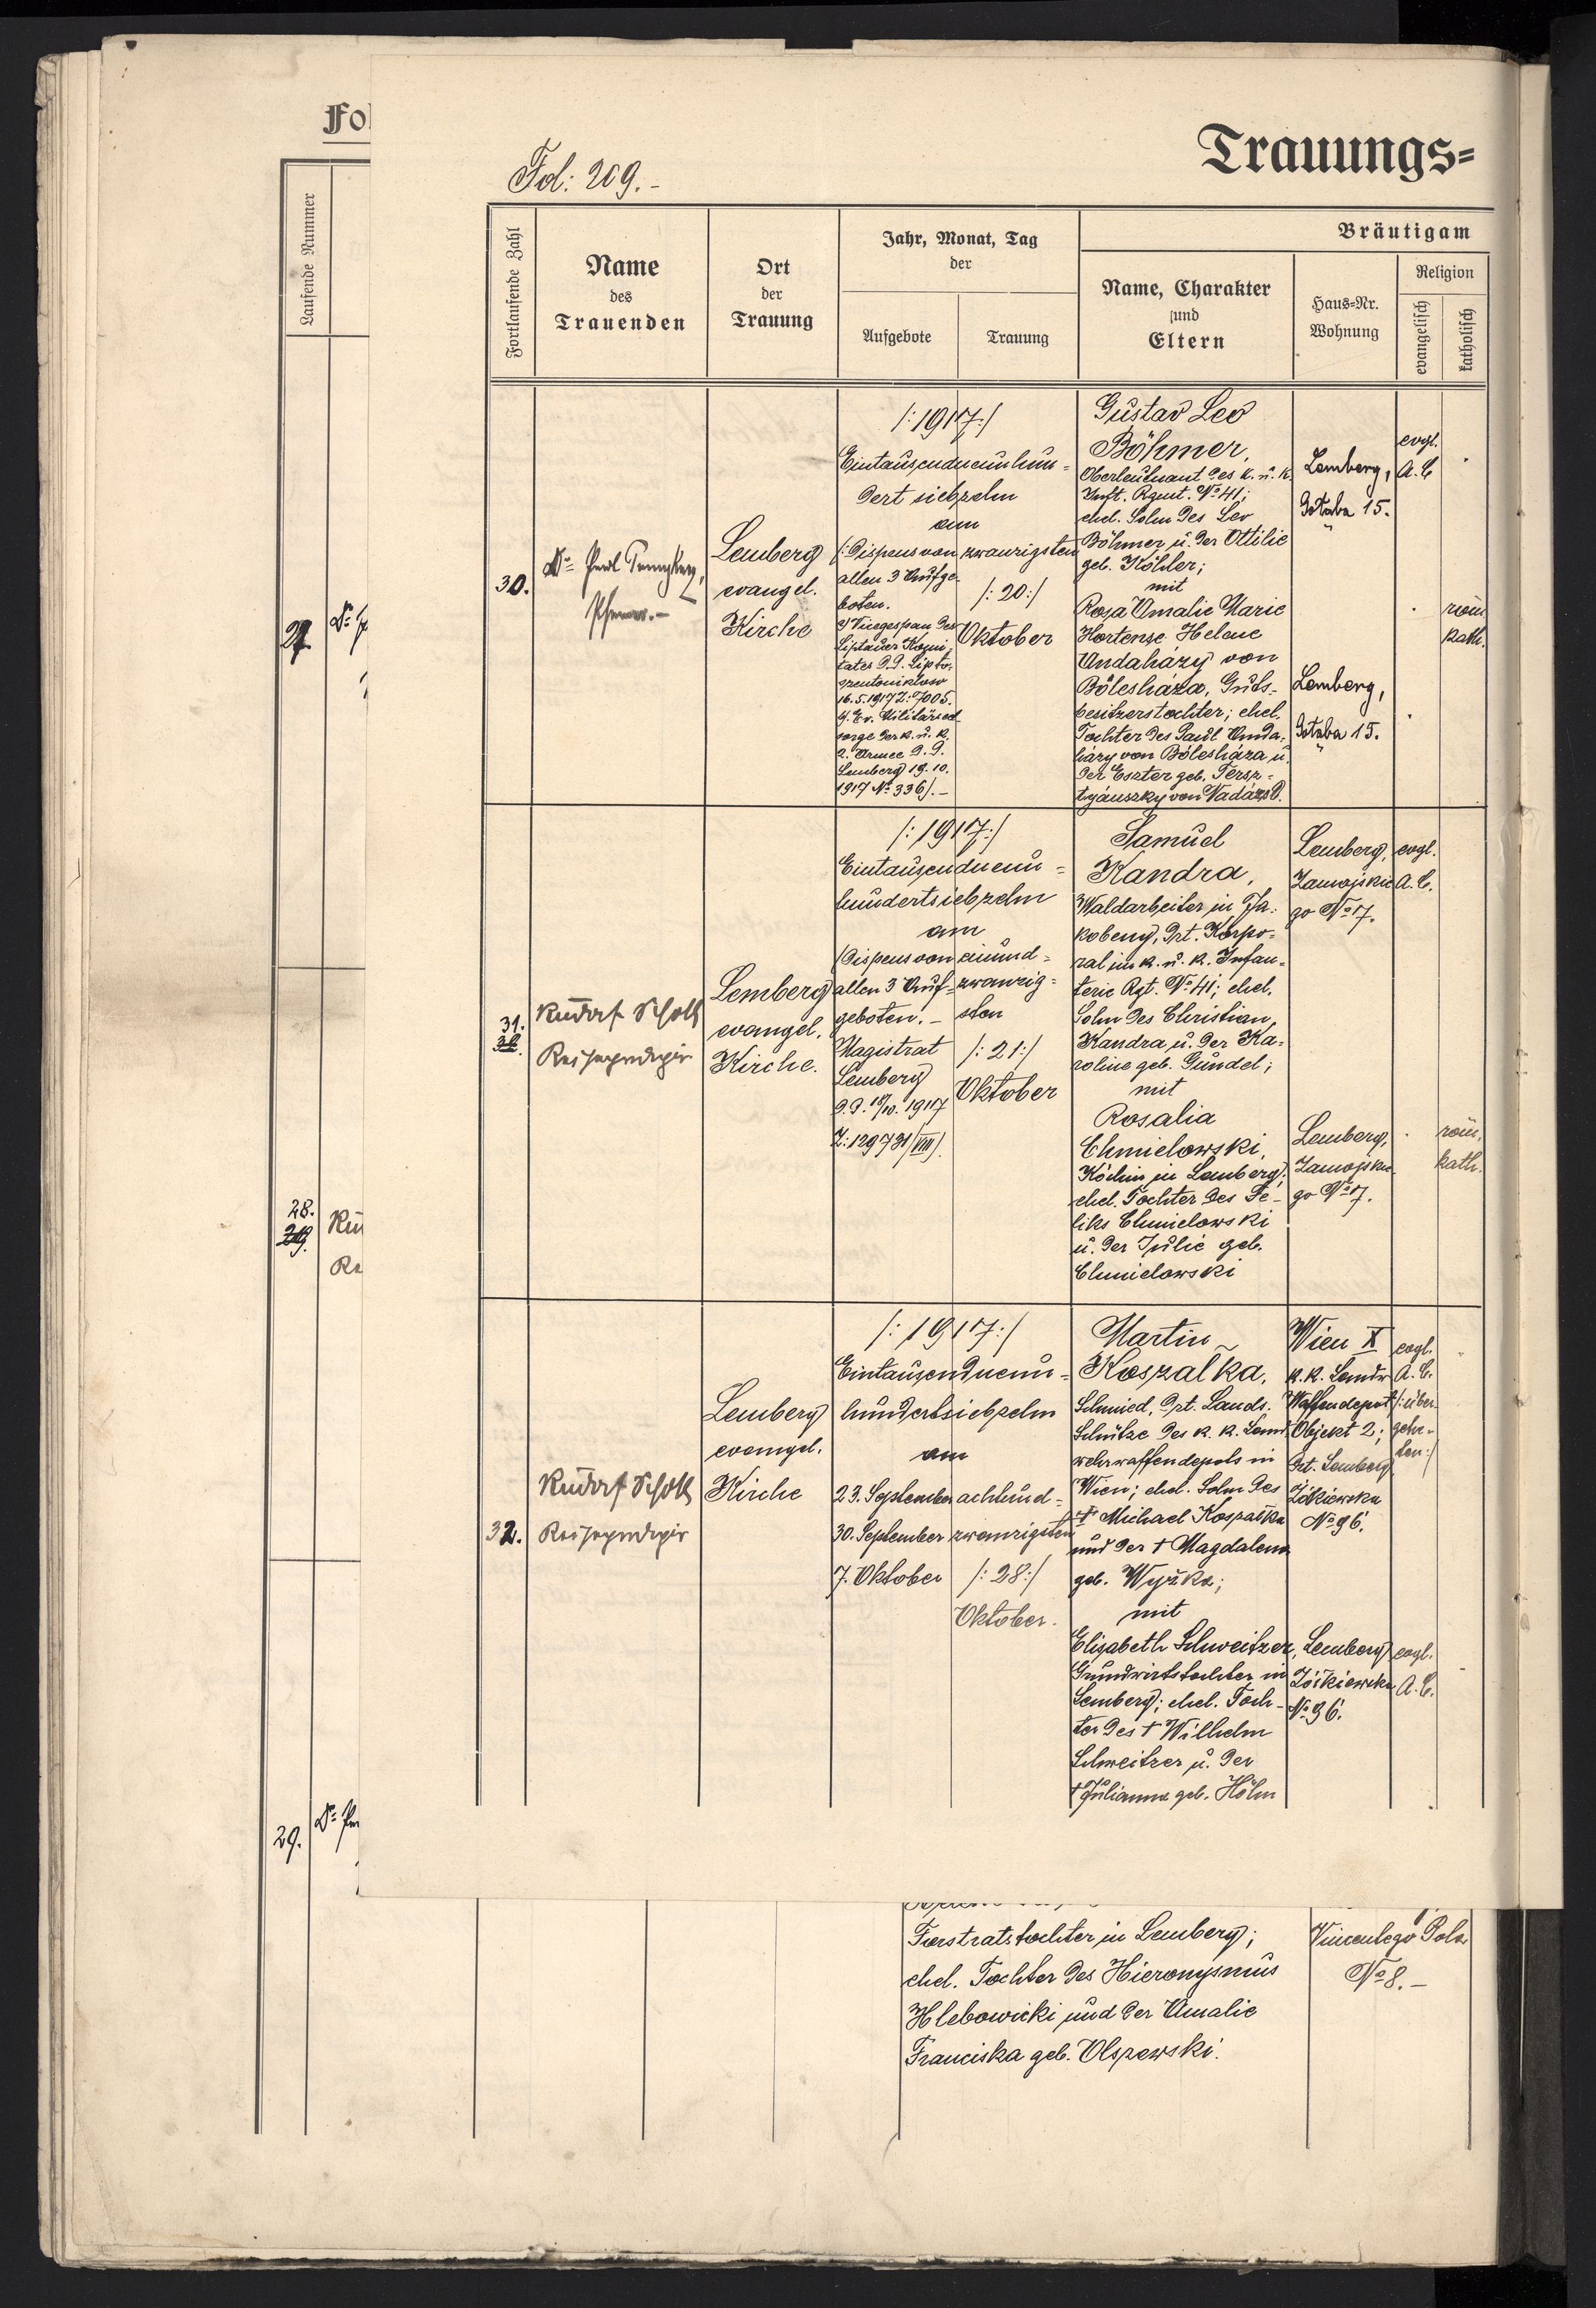 Fo
Laufende Nummer
27.
Dr.
28.
29.
Ru
Re
29.
Dr.
Trauungs=
Fol: 209.-
Fortlaufende Zahl
Name
des
Trauenden
Ort
der
Trauung
Jahr, Monat, Tag
der
Aufgebote
Trauung
Bräutigam
Name, Charakter
und
Eltern
Haus-Nr.
Wohnung
Religion
evangelisch
katholisch
30.
Lemberg
evangel.
Kirche
/:1917:/
Eintausendneunhun=
dert siebzehn
am
/:Dispens von
allen 3 Aufge-
boten.
Vicegespan des
Liptauer Komi-
tates d.d. Liptó-
szentmiklós
16.5.1917 Z: 7005.
Ev. Militärseel-
sorge der k. u. k.
2. Armee d.d.
Lemberg 19.10.
1917 No 336/.-
zwanzigsten
/:20:/
Oktober
Gustav Leo
Böhmer,
Oberleutnant des k. u. k.
Inft. Rgmt. No 41;
ehel. Sohn des Leo
Böhmer u. der Ottilie
geb. Köhler;
mit
Rosa Amalie Marie
Hortense Helene
Andaházy von
Bólesháza, Guts-
besitzerstochter; ehel.
Tochter des Paul Anda-
házy von Bólesháza u.
der Eszter geb. Tersz-
tyánszky von Nadász.
Lemberg,
15.
Lemberg,
15.
evgl.
A.C.
röm.
kath.
31.
Rudolf Scholz
Reiseprediger
Lemberg
evangel.
Kirche.
/:1917:/
Eintausendneun=
hundertsiebzehn
am
/Dispens von
allen 3 Auf-
geboten.-
Magistrat
Lemberg
d.d. 18/10. 1917
Z: 129731/VIII/.
einund=
zwanzig=
sten
/:21:/
Oktober
Samuel
Kandra,
Waldarbeiter in Ja-
kobeny, dzt. Korpo-
ral im k. u. k. Infan-
terie Rgt. No 41; ehel.
Sohn des Christian
Kandra u. der Ka-
roline geb. Gundel;
mit
Rosalia
Chmielowski,
Köchin in Lemberg;
ehel. Tochter des Fe-
liks Chmielowski
u. der Julie geb.
Chmielowski
Lemberg,
Zamojskie
go No 7.
Lemberg,
Zamojskie
go No 7.
evgl.
A.C.
röm.
kath.
32.
Rudolf Scholz
Reiseprediger
Lemberg
evangel.
Kirche
/:1917:/
Eintausendneun=
hundertsiebzehn
am
23. September
30. September
7. Oktober
achtund=
zwanzigsten
/:28:/
Oktober.
Martin
Koszalka,
Schmied, dzt. Lands.
Schütze des k. k. Land-
wehrwaffendepots in
Wien; ehel. Sohn des
† Michael Kospalka
und der † Magdalena
geb. Wyżka;
mit
Elisabeth Schweitzer,
Grundwirtstochter in
Lemberg; ehel. Toch-
ter des † Wilhelm
Schweitzer u. der
† Julianna geb. Höhn
Wien X
k.k. Landw
Waffendepot
Objekt 2;
dzt. Lemberg
Żółkiewska
No 96.
Lemberg
Żółkiewska
No 96.
evgl.
A.C.
/:über-
getre-
ten:/
evgl.
A.C.
Forstratstochter in Lemberg;
ehel. Tochter des Hieronymus
Hlebowicki und der Amalie
Franciska geb. Olszewski.
Vincentego Pola
No 8.-